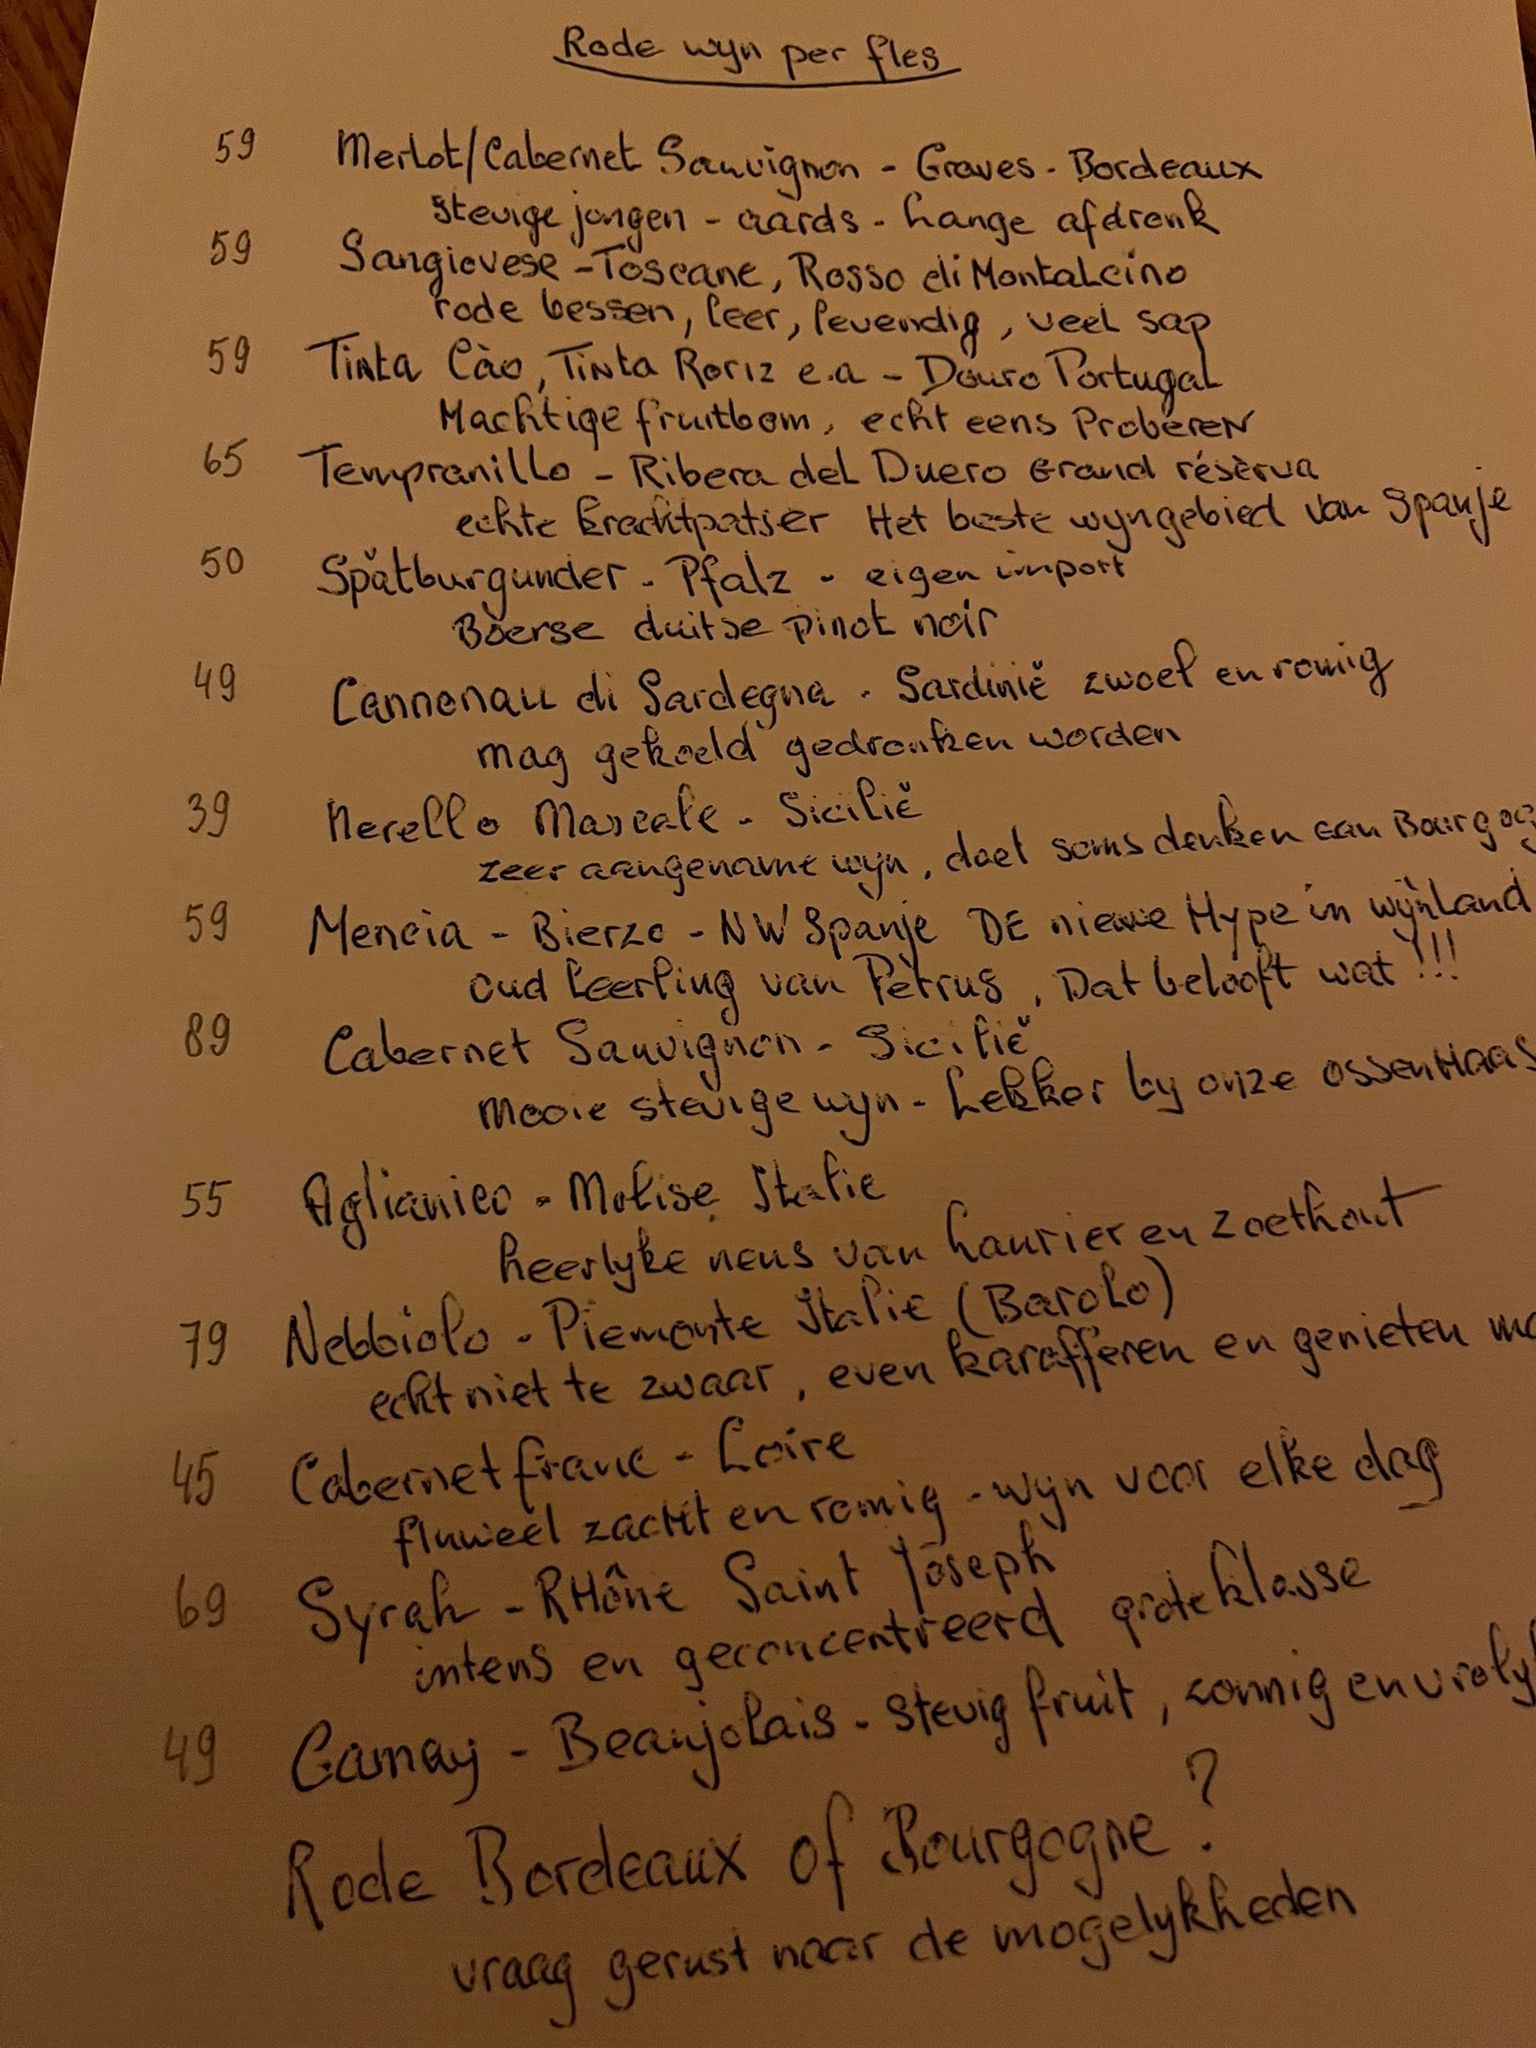 Rode wijn per fles
59 Merlot/Cabernet Sauvignon - Graves - Bordeaux
stevige jongen - aards - lange afdronk
59 Sangiovese - Toscane, Rosso di Montalcino
rode bessen, leer, levendig, veel sap
59 Tinta Cào, Tinta Roriz e.a - Douro Portugal
Machtige fruitbom, echt eens Proberen
65 Tempranillo - Ribera del Duero Grand résèrva
echte krachtpatser Het beste wijngebied van Spanje
50 Spätburgunder - Pfalz - eigen import
Boerse duitse pinot noir
49 Cannonau di Sardegna - Sardinië zwoel en romig
mag gekoeld gedronken worden
39 Nerello Mascale - Sicilië
zeer aangename wijn, doet soms denken aan Bourgog
59 Mencia - Bierzo - NW Spanje DE nieuwe Hype in wijnland
oud leerling van Petrus, Dat belooft wat!!!
89 Cabernet Sauvignon - Sicilië
Mooie stevige wijn - Lekker by onze ossenHaas
55 Aglianico - Molise Italie
heerlyke neus van laurier en zoethout
79 Nebbiolo - Piemonte Italie (Barolo)
echt niet te zwaar, even karafferen en genieten
45 Cabernet franc - Loire
fluweel zacht en romig - wijn voor elke dag
69 Syrah - RHône Saint Joseph
intens en geconcentreerd grote klasse
49 Gamay - Beaujolais - stevig fruit, zonnig en vroly
Rode Bordeaux of Bourgogne?
vraag gerust naar de mogelykheden